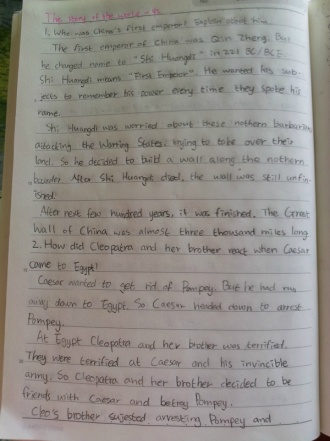 The story of the world - 46
1. Who was China's first emperor? Explain about him.
The first emperor of China was Qin Zheng. But
he changed name to "Shi Huangdi" in 221 BC/BCE.
Shi Huangdi means "First Emperor". He wanted his sub-
jects to remember his power every time they spoke his
name.
Shi Huangdi was worried about these nothern barbarians
attacking the Warring States, trying to take over their
land. So he decided to build a wall along the nothern
bounder. After Shi Huangdi died, the wall was still unfin-
ished!
After next few hundred years, it was finished. The Great
Wall of China was almost three thousand miles long.
2. How did Cleopatra and her brother react when Caesar
came to Egypt?
Caesar wanted to get rid of Pompey. But he had run
away down to Egypt. So Caesar headed down to arrest
Pompey.
At Egypt Cleopatra and her brother was terrified.
They were terrified at Caesar and his invincible
army. So Cleopatra and her brother decided to be
friends with Caesar and betray Pompey.
Cleo's brother sujested arresting Pompey and